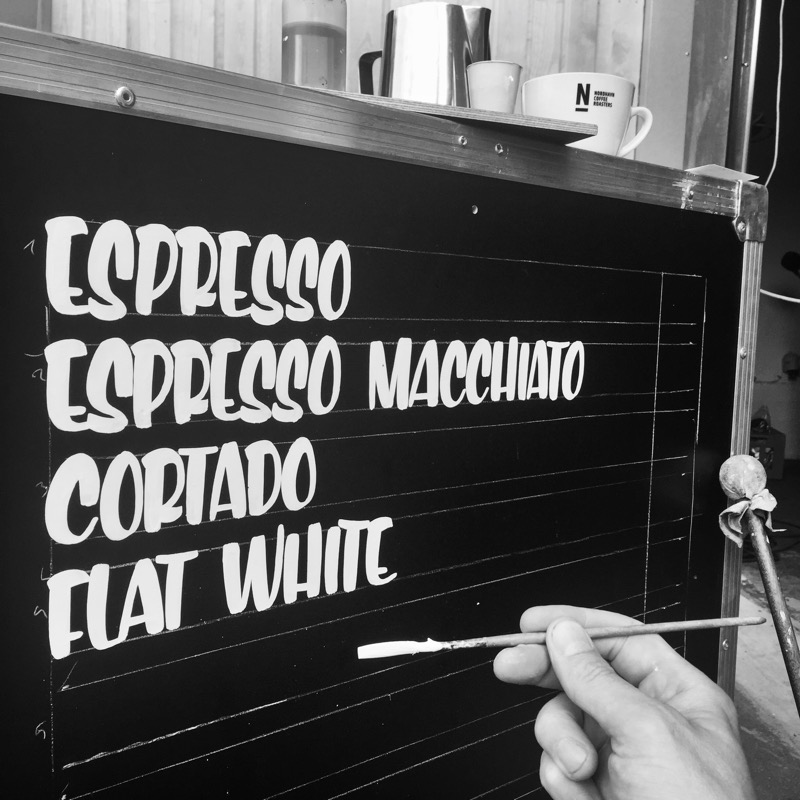 N NORDHAVN
COFFEE
ROASTERS
ESPRESSO
ESPRESSO MACCHIATO
CORTADO
FLAT WHITE